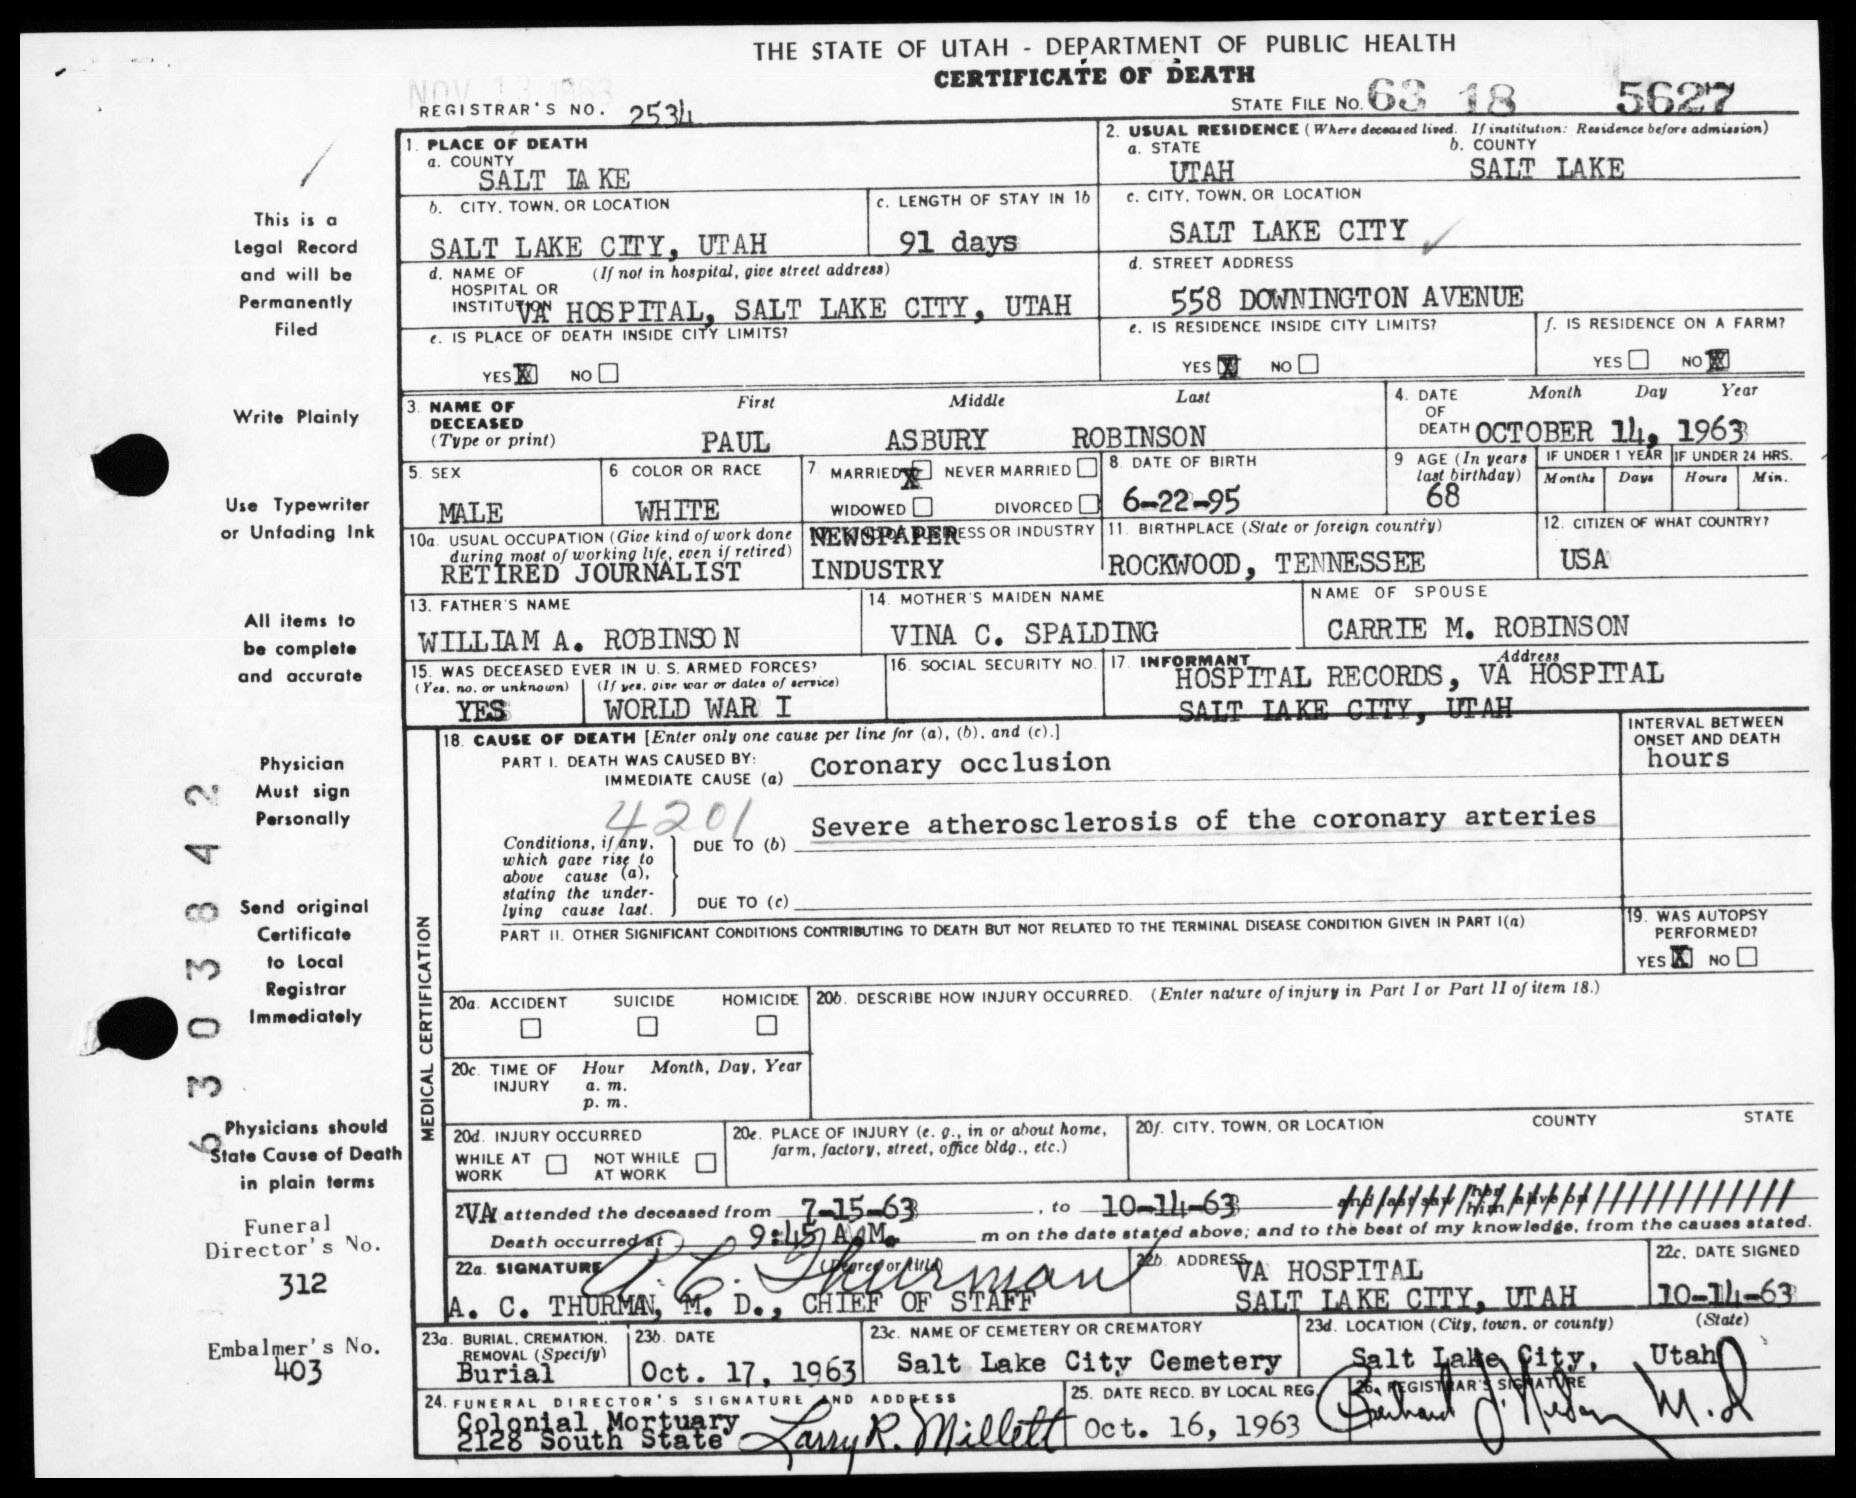 THE STATE OF UTAH - DEPARTMENT OF PUBLIC HEALTH
CERTIFICATE OF DEATH
NOV 13 1963
REGISTRAR'S NO. 2534
STATE FILE NO. 63 18 5627
1. PLACE OF DEATH
a. COUNTY
SALT LAKE
2. USUAL RESIDENCE (Where deceased lived. If institution: Residence before admission)
a. STATE b. COUNTY
UTAH SALT LAKE
b. CITY, TOWN, OR LOCATION
SALT LAKE CITY, UTAH
c. LENGTH OF STAY IN 1b
91 days
c. CITY, TOWN, OR LOCATION
SALT LAKE CITY
d. NAME OF (If not in hospital, give street address)
HOSPITAL OR
INSTITUTION VA HOSPITAL, SALT LAKE CITY, UTAH
d. STREET ADDRESS
558 DOWNINGTON AVENUE
e. IS PLACE OF DEATH INSIDE CITY LIMITS?
YES X NO
e. IS RESIDENCE INSIDE CITY LIMITS?
YES X NO
f. IS RESIDENCE ON A FARM?
YES NO X
3. NAME OF DECEASED (Type or print)
First Middle Last
PAUL ASBURY ROBINSON
4. DATE OF DEATH Month Day Year
OCTOBER 14, 1963
5. SEX
MALE
6 COLOR OR RACE
WHITE
7. MARRIED X NEVER MARRIED
WIDOWED DIVORCED
8. DATE OF BIRTH
6-22-95
9 AGE (In years last birthday)
68
IF UNDER 1 YEAR IF UNDER 24 HRS.
Months Days Hours Min.
10a. USUAL OCCUPATION (Give kind of work done during most of working life, even if retired)
RETIRED JOURNALIST
KIND OF BUSINESS OR INDUSTRY
NEWSPAPER
INDUSTRY
11. BIRTHPLACE (State or foreign country)
ROCKWOOD, TENNESSEE
12. CITIZEN OF WHAT COUNTRY?
USA
13. FATHER'S NAME
WILLIAM A. ROBINSON
14. MOTHER'S MAIDEN NAME
VINA C. SPALDING
NAME OF SPOUSE
CARRIE M. ROBINSON
15. WAS DECEASED EVER IN U. S. ARMED FORCES?
(Yes, no, or unknown) (If yes, give war or dates of service)
YES WORLD WAR I
16. SOCIAL SECURITY NO.
17. INFORMANT Address
HOSPITAL RECORDS, VA HOSPITAL
SALT LAKE CITY, UTAH
MEDICAL CERTIFICATION
18. CAUSE OF DEATH [Enter only one cause per line for (a), (b), and (c).]
INTERVAL BETWEEN ONSET AND DEATH
PART I. DEATH WAS CAUSED BY:
IMMEDIATE CAUSE (a) Coronary occlusion
hours
4201
Conditions, if any, which gave rise to above cause (a), stating the underlying cause last.
DUE TO (b) Severe atherosclerosis of the coronary arteries
DUE TO (c)
PART II. OTHER SIGNIFICANT CONDITIONS CONTRIBUTING TO DEATH BUT NOT RELATED TO THE TERMINAL DISEASE CONDITION GIVEN IN PART I(a)
19. WAS AUTOPSY PERFORMED?
YES X NO
20a. ACCIDENT SUICIDE HOMICIDE
20b. DESCRIBE HOW INJURY OCCURRED. (Enter nature of injury in Part I or Part II of item 18.)
20c. TIME OF INJURY Hour Month, Day, Year
a. m.
p. m.
20d. INJURY OCCURRED
WHILE AT WORK NOT WHILE AT WORK
20e. PLACE OF INJURY (e. g., in or about home, farm, factory, street, office bldg., etc.)
20f. CITY, TOWN, OR LOCATION COUNTY STATE
VA attended the deceased from 7-15-63, to 10-14-63 and last saw her him alive on
Death occurred at 9:45 A.M. m on the date stated above; and to the best of my knowledge, from the causes stated.
22a. SIGNATURE (Degree or title)
A. C. Thurman
A. C. THURMAN, M. D., CHIEF OF STAFF
22b. ADDRESS
VA HOSPITAL
SALT LAKE CITY, UTAH
22c. DATE SIGNED
10-14-63
23a. BURIAL, CREMATION, REMOVAL (Specify)
Burial
23b. DATE
Oct. 17, 1963
23c. NAME OF CEMETERY OR CREMATORY
Salt Lake City Cemetery
23d. LOCATION (City, town, or county) (State)
Salt Lake City, Utah
24. FUNERAL DIRECTOR'S SIGNATURE AND ADDRESS
Colonial Mortuary
2128 South State
Larry R. Millett
25. DATE RECD. BY LOCAL REG.
Oct. 16, 1963
26. REGISTRAR'S SIGNATURE
M.D
This is a
Legal Record
and will be
Permanently
Filed
Write Plainly
Use Typewriter
or Unfading Ink
All items to
be complete
and accurate
Physician
Must sign
Personally
Send original
Certificate
to Local
Registrar
Immediately
Physicians should
State Cause of Death
in plain terms
Funeral
Director's No.
312
Embalmer's No.
403
63303842